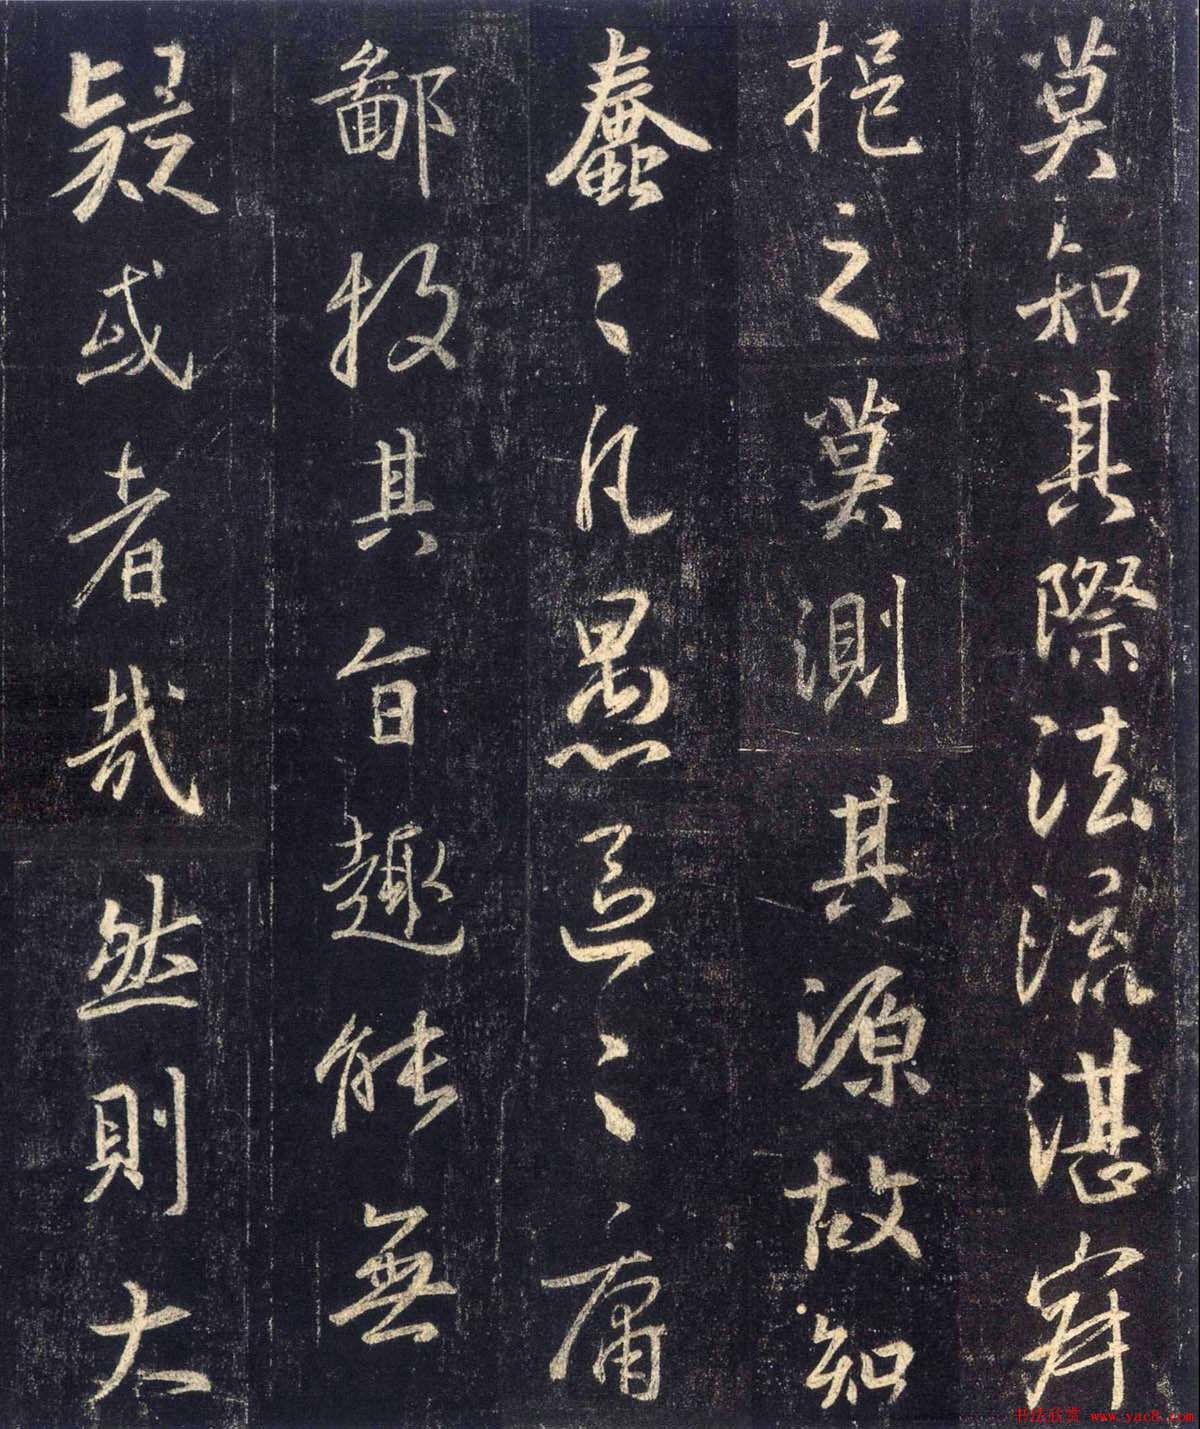 莫知其際法流湛寂
挹之莫測其源故知
蠢〻凡愚區〻庸
鄙投其旨趣能無
疑或者哉然則大
书法欣赏 www.yac8.com